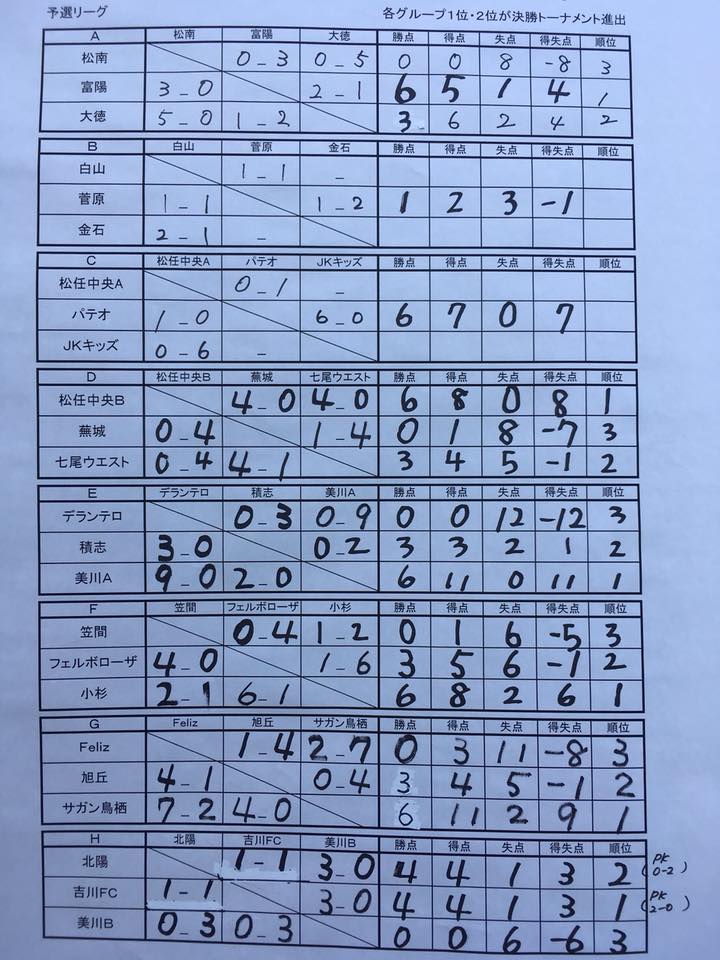 予選リーグ 各グループ1位・2位が決勝トーナメント進出
A 松南 富陽 大徳 勝点 得点 失点 得失点 順位
松南 0 - 3 0 - 5 0 0 8 -8 3
富陽 3 - 0 2 - 1 6 5 1 4 1
大徳 5 - 0 1 - 2 3 6 2 4 2
B 白山 菅原 金石 勝点 得点 失点 得失点 順位
白山 1 - 1 -
菅原 1 - 1 1 - 2 1 2 3 -1
金石 2 - 1 -
C 松任中央A パテオ JKキッズ 勝点 得点 失点 得失点 順位
松任中央A 0 - 1 -
パテオ 1 - 0 6 - 0 6 7 0 7
JKキッズ 0 - 6 -
D 松任中央B 蕪城 七尾ウエスト 勝点 得点 失点 得失点 順位
松任中央B 4 - 0 4 - 0 6 8 0 8 1
蕪城 0 - 4 1 - 4 0 1 8 -7 3
七尾ウエスト 0 - 4 4 - 1 3 4 5 -1 2
E デランテロ 積志 美川A 勝点 得点 失点 得失点 順位
デランテロ 0 - 3 0 - 9 0 0 12 -12 3
積志 3 - 0 0 - 2 3 3 2 1 2
美川A 9 - 0 2 - 0 6 11 0 11 1
F 笠間 フェルボローザ 小杉 勝点 得点 失点 得失点 順位
笠間 0 - 4 1 - 2 0 1 6 -5 3
フェルボローザ 4 - 0 1 - 6 3 5 6 -1 2
小杉 2 - 1 6 - 1 6 8 2 6 1
G Feliz 旭丘 サガン鳥栖 勝点 得点 失点 得失点 順位
Feliz 1 - 4 2 - 7 0 3 11 -8 3
旭丘 4 - 1 0 - 4 3 4 5 -1 2
サガン鳥栖 7 - 2 4 - 0 6 11 2 9 1
H 北陽 吉川FC 美川B 勝点 得点 失点 得失点 順位
北陽 1 - 1 3 - 0 4 4 1 3 2 (PK 0-2)
吉川FC 1 - 1 3 - 0 4 4 1 3 1 (PK 2-0)
美川B 0 - 3 0 - 3 0 0 6 -6 3